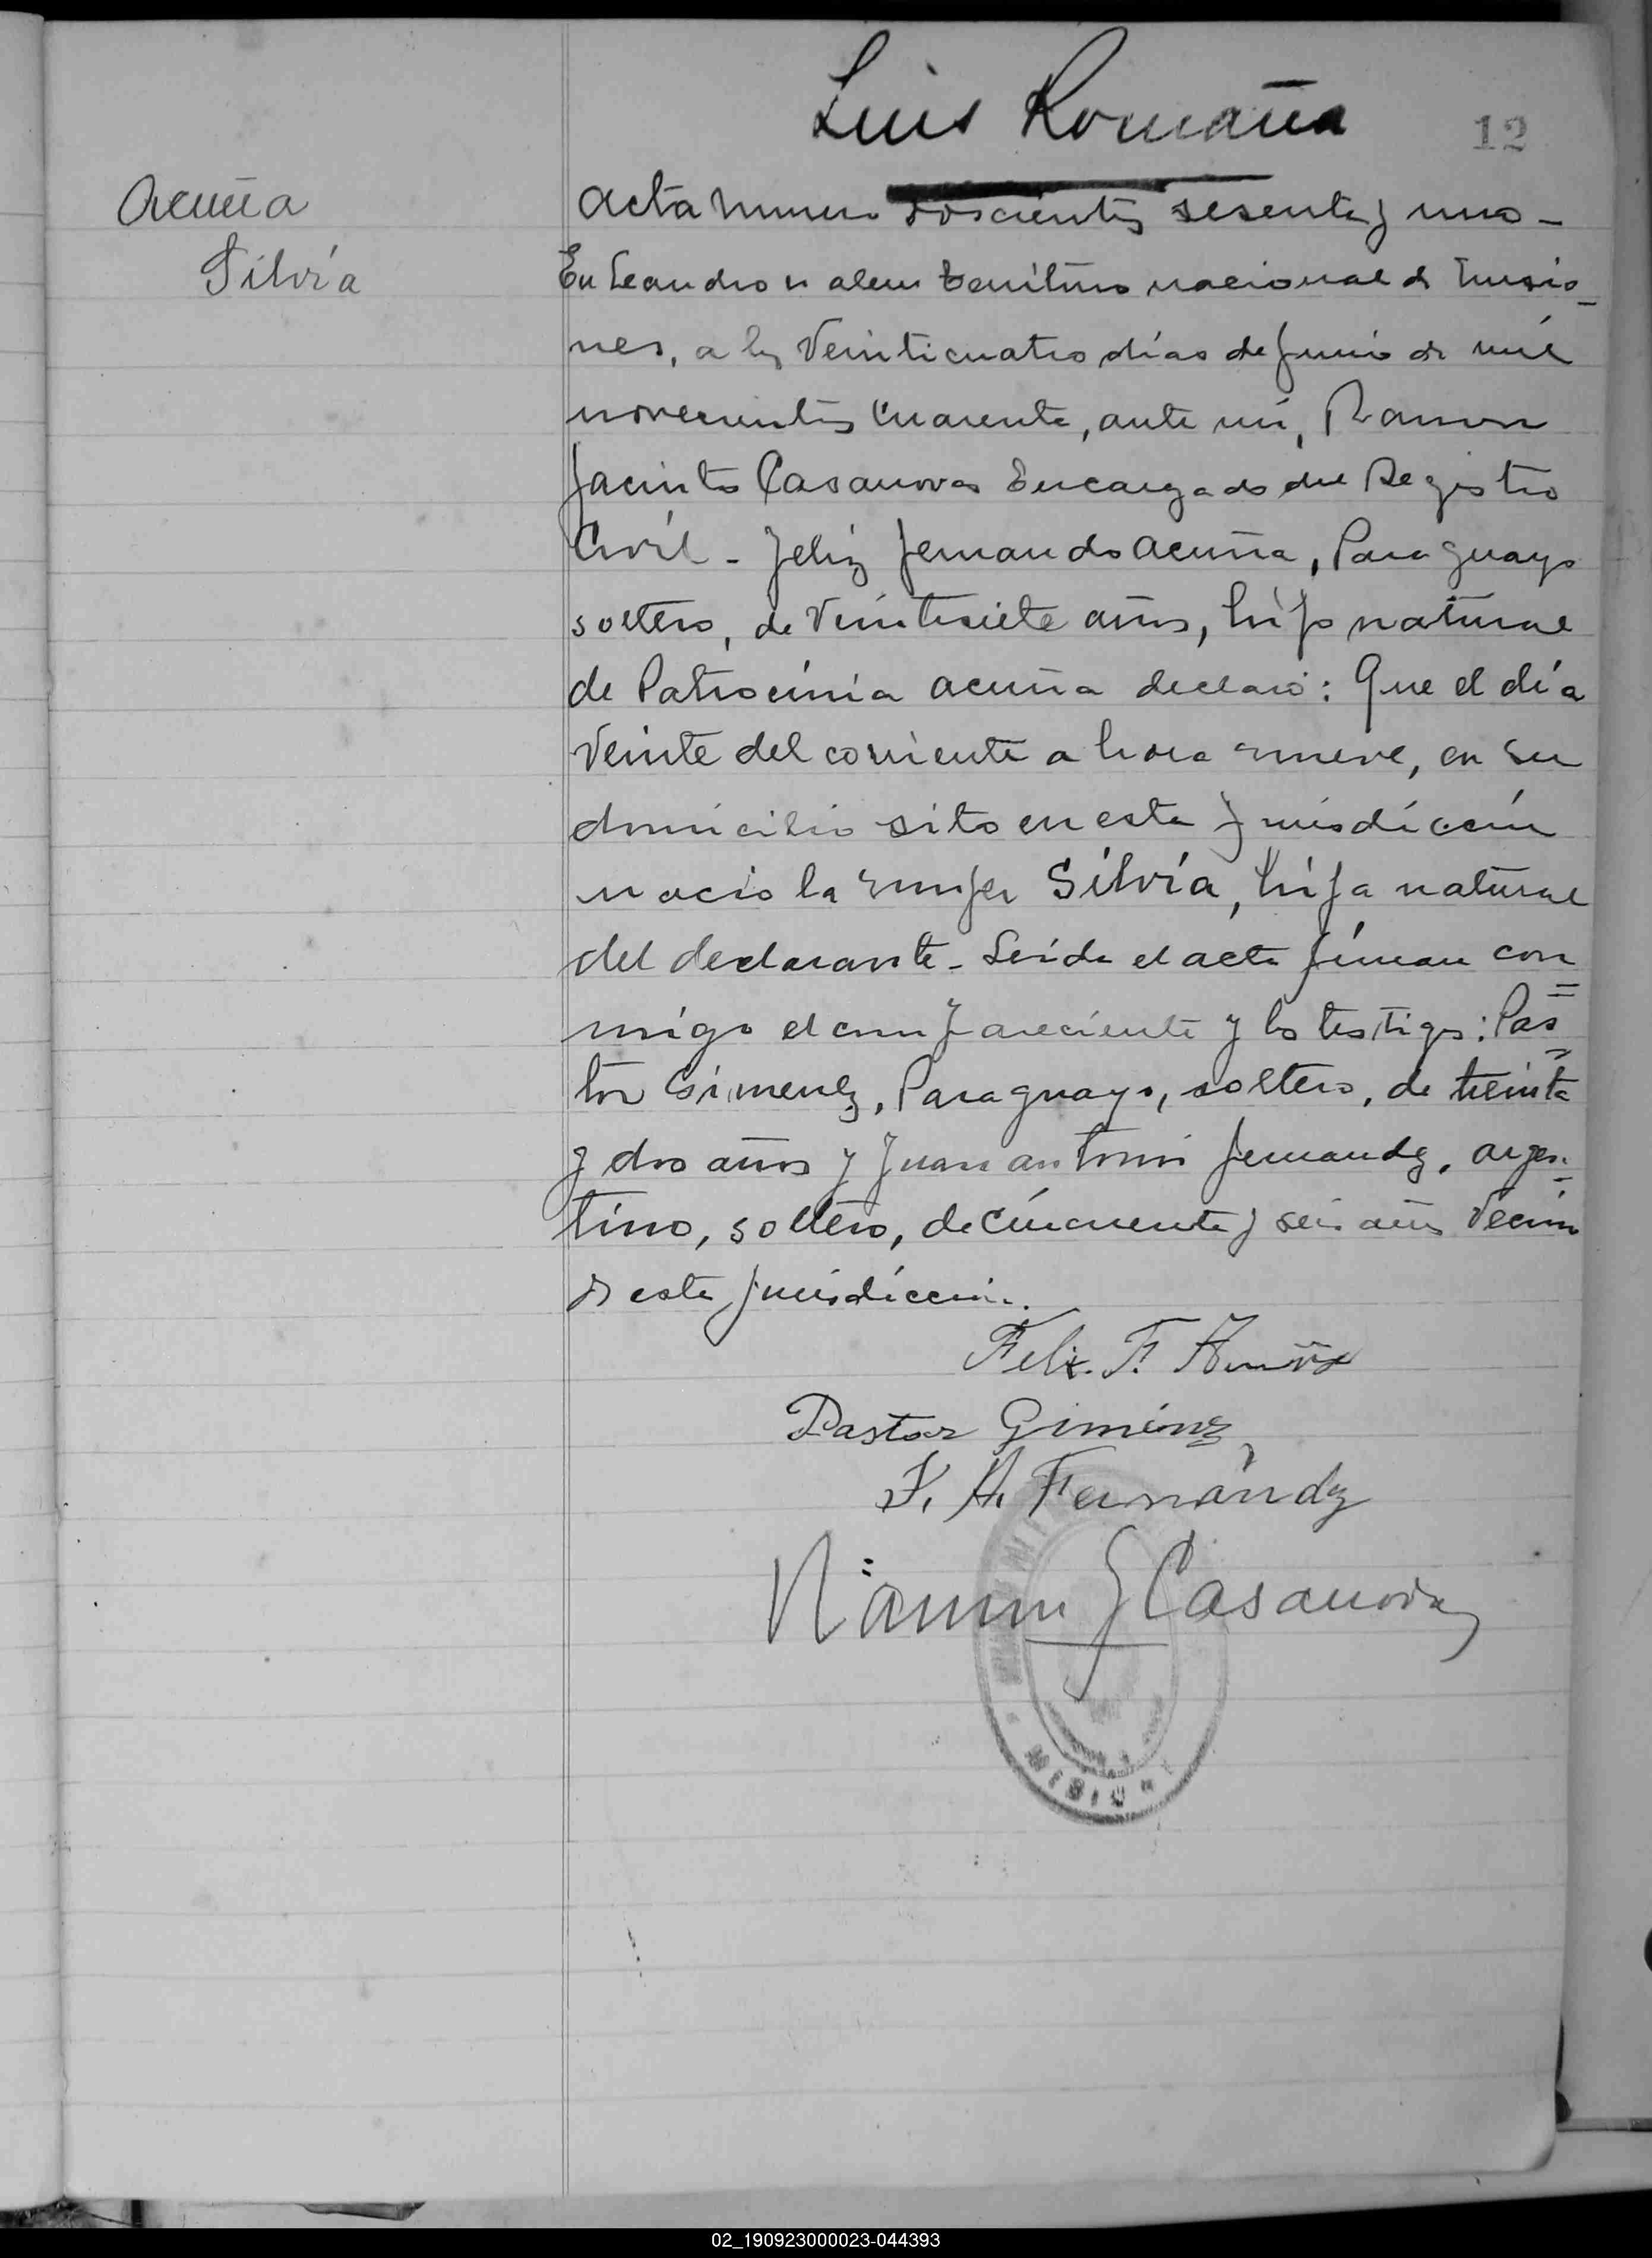 Luis Romaña
12
Acuña
Silvia
Acta numero doscientos sesenta y uno -
En Leandro N Alem territorio nacional de Misio-
nes, a los Veinticuatro días de Junio de mil
novecientos Cuarenta, ante mí, Ramon
Jacinto Casanova Encargado del Registro
Civil - Feliz Fernando Acuña, Paraguayo
soltero, de Veintisiete años, hijo natural
de Patrocinia Acuña declaró: Que el día
Veinte del corriente a hora nueve, en su
domicilio sito en esta Jurisdicción
nacio la mujer Silvia, hija natural
del declarante - Leida el acta firman con
migo el compareciente y los testigos: Pas=
tor Gimenez, Paraguayo, soltero, de treinta
y dos años y Juan Antonio Fernandez, argen-
tino, soltero, de Cincuenta y seis años Vecinos
de esta Jurisdiccion.
Felix. F. Acuña
Pastor Giménez
J. A. Fernández
Ramon J Casanova
MISION
02_190923000023-044393